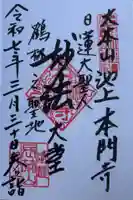 大本山 池上 本門寺
日蓮大聖人
妙法 大堂
鶴林之聖地
令和七年三月二十日 参詣